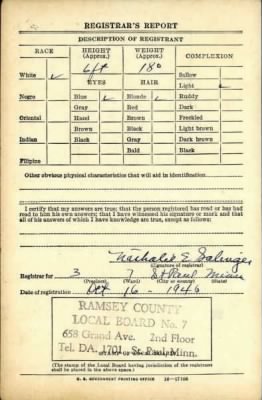 REGISTRAR'S REPORT
DESCRIPTION OF REGISTRANT
RACE
HEIGHT (Approx.)
WEIGHT (Approx.)
COMPLEXION
6ft 180
White ✓ Sallow
EYES HAIR Light ✓
Negro Blue ✓ Blonde ✓ Ruddy
Gray Red Dark
Oriental Hazel Brown Freckled
Brown Black Light brown
Indian Black Gray Dark brown
Bald Black
Filipino
Other obvious physical characteristics that will aid in identification
I certify that my answers are true; that the person registered has read or has had
read to him his own answers; that I have witnessed his signature or mark and that
all of his answers of which I have knowledge are true, except as follows:
Nathalie E.
(Signature of registrar)
Registrar for 3 7 St Paul Minn
(Precinct) (Ward) (City or county) (State)
Date of registration Oct 16 - 1940
RAMSEY COUNTY
LOCAL BOARD No. 7
658 Grand Ave. 2nd Floor
Tel. DA. 1701 St. Paul, Minn.
(The stamp of the Local Board having jurisdiction of the registrant
shall be placed in the above space.)
U. S. GOVERNMENT PRINTING OFFICE 16-17105